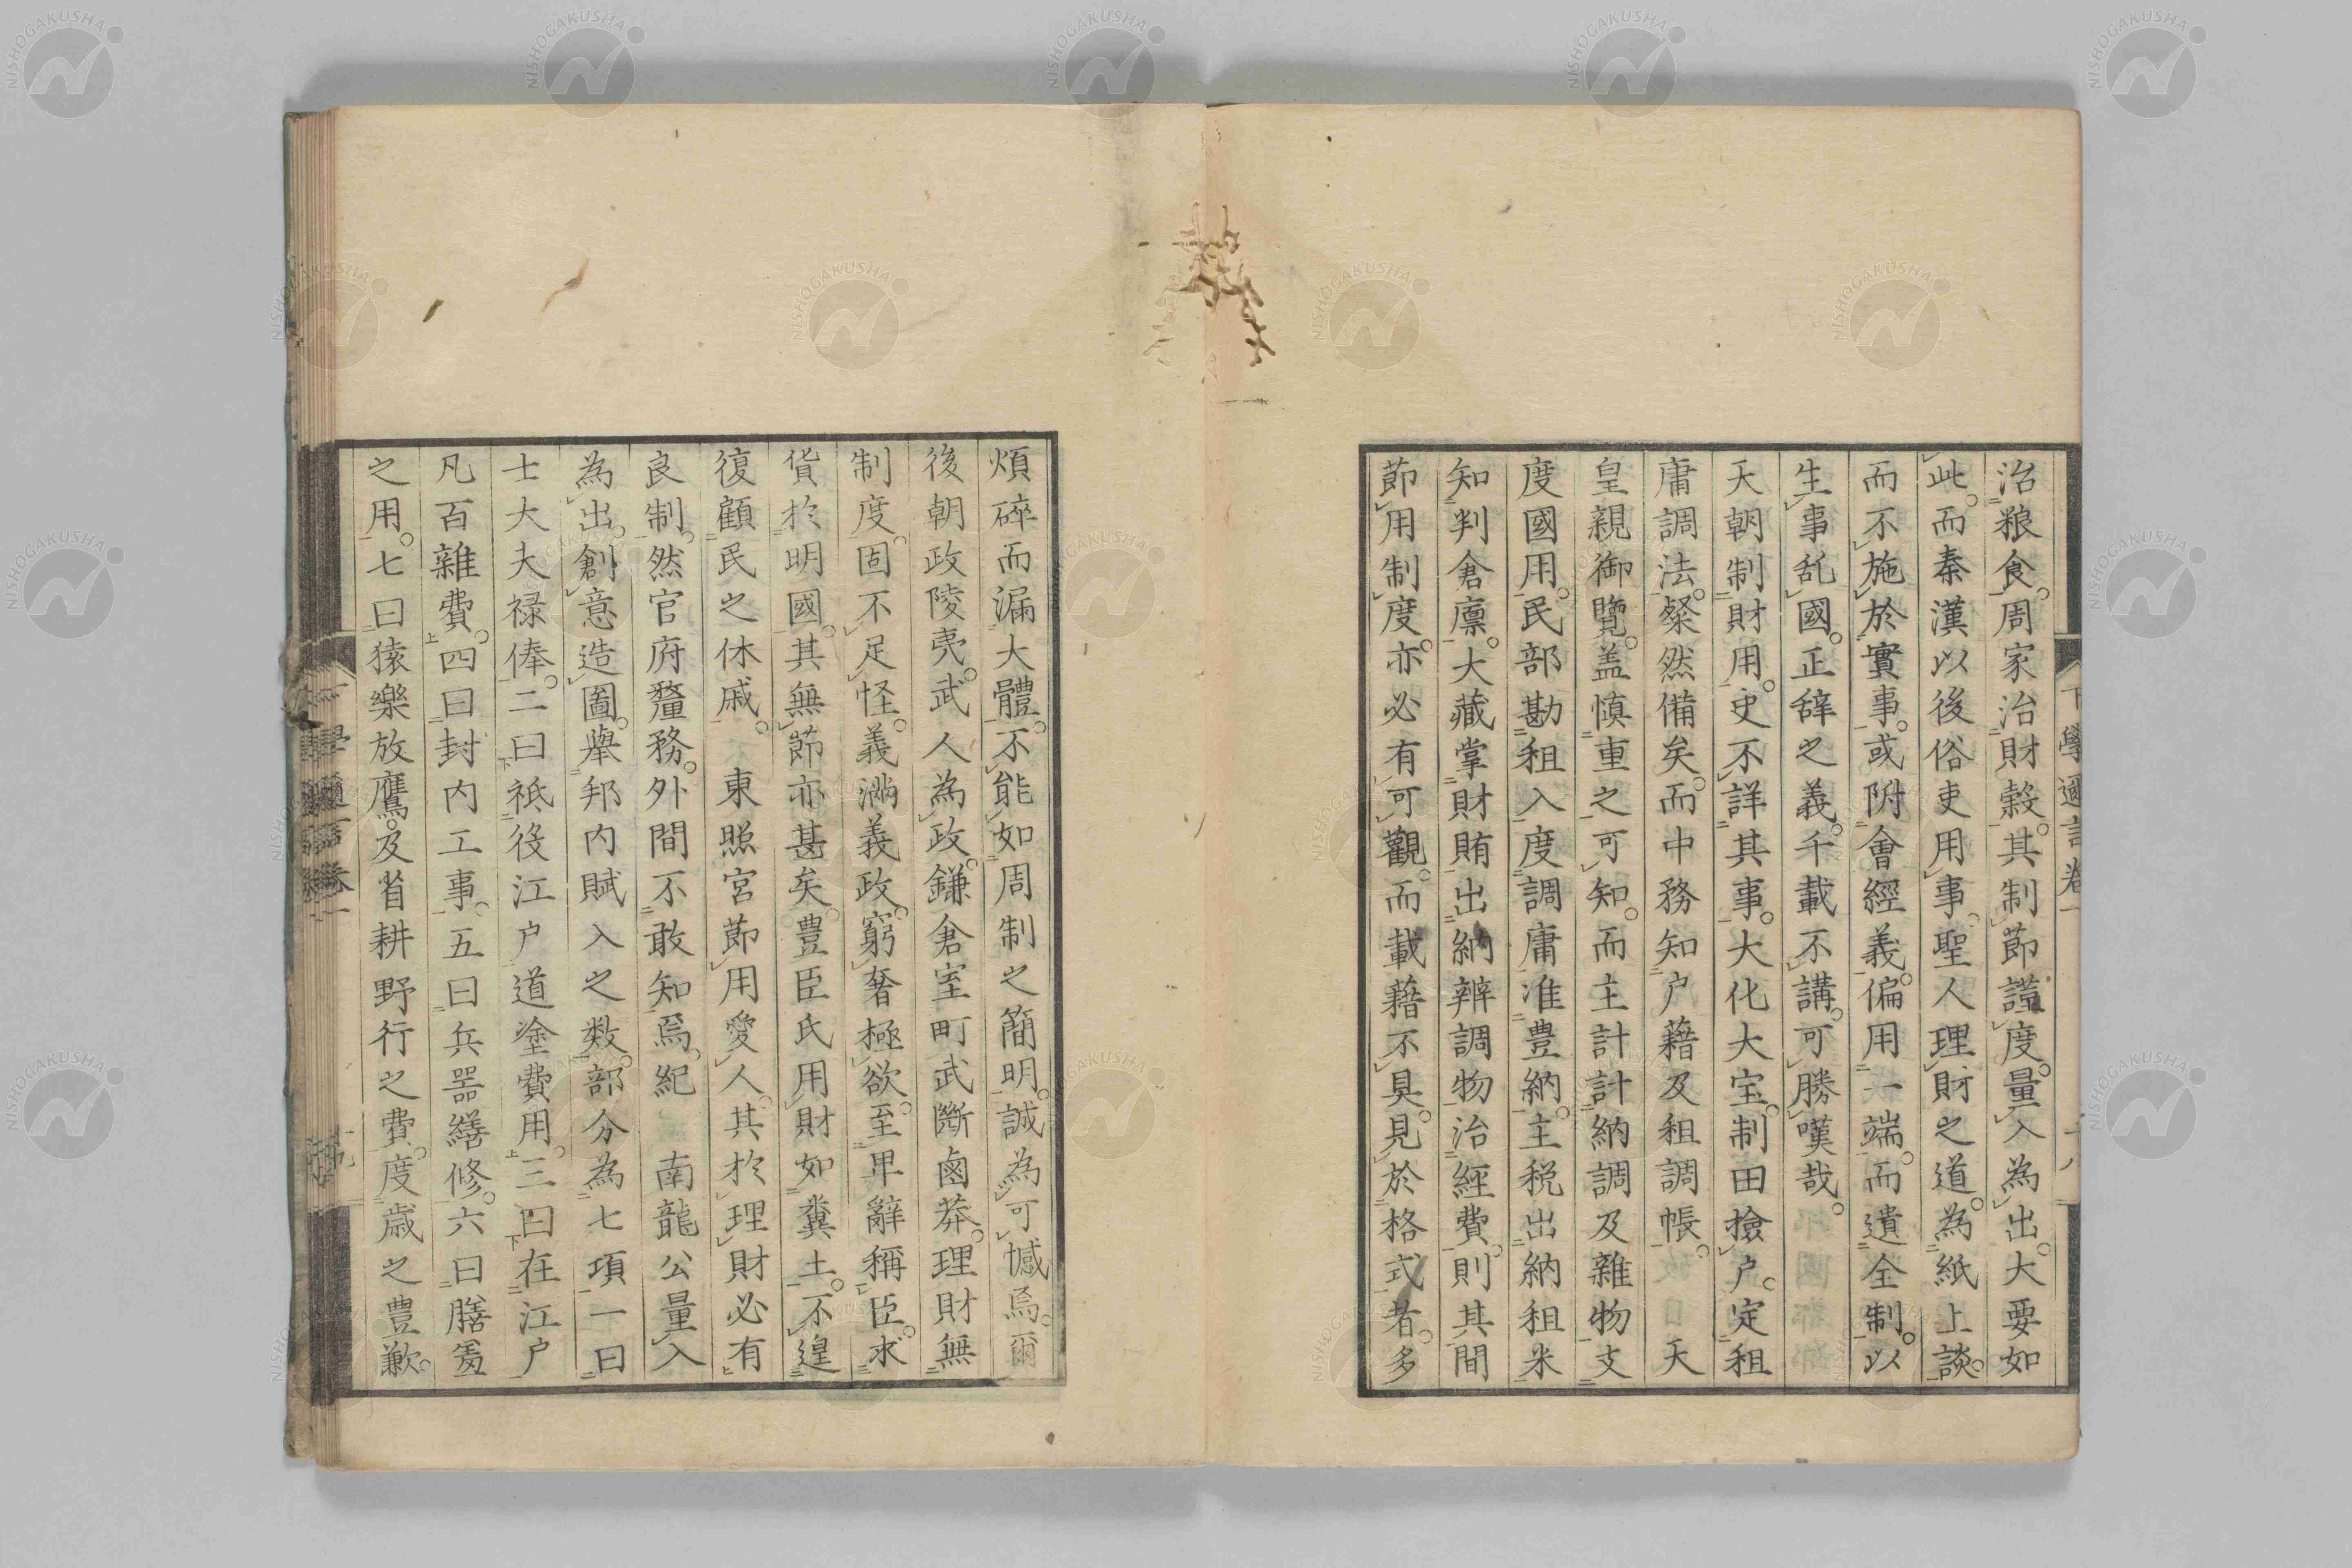 治粮食。周家治財穀。其制節謹度。量入為出。大要如
此。而秦漢以後俗吏用事。聖人理財之道。為紙上談。
而不施於實事。或附會經義。偏用一端。而遺全制。以
生事乱國。正辞之義。千載不講。可勝嘆哉。
天朝制財用。史不詳其事。大化大宝。制田撿户。定租
庸調法。粲然備矣。而中務知户藉及租調帳。天
皇親御覽。盖慎重之可知。而主計計納調及雜物支
度國用。民部勘租入度調庸准豊納。主税出納租米
知判倉廪。大藏掌財賄出納辨調物治經費。則其間
節用制度。亦必有可觀。而載藉不具。見於格式者。多
下學邇言卷一
十八
煩碎而漏大體。不能如周制之簡明。誠為可憾焉。爾
後朝政陵夷。武人為政。鎌倉室町武断鹵莽。理財無
制度。固不足怪。義満義政。窮奢極欲。至卑辭稱臣。求
貨於明國。其無節亦甚矣。豊臣氏用財如糞土。不遑
復顧民之休戚。東照宮節用愛人。其於理財必有
良制。然官府釐務。外間不敢知焉。紀南龍公量入
為出。創意造圖。舉邦内賦入之数。部分為七項一曰
士大夫禄俸。二曰祗役江户道塗費用。三曰在江户
凡百雜費。四曰封内工事。五曰兵器繕修。六曰膳羞
之用。七曰猿樂放鷹。及省耕野行之費。度歳之豊歉。
下學邇言卷一
十九
NISHOGAKUSHA